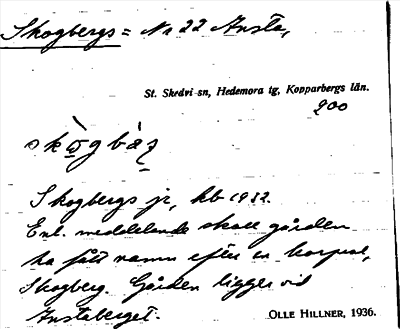 Skogbergs = No 22 Ansta,
St. Skedvi sn, Hedemora tg, Kopparbergs län.
200
skògbàʐ
Skogbergs jr, kb 1932.
Enl. meddelande skall gården
ha fått namn efter en korpral,
Skogberg. Gården ligger vid
Anstaberget. OLLE HILLNER, 1936.